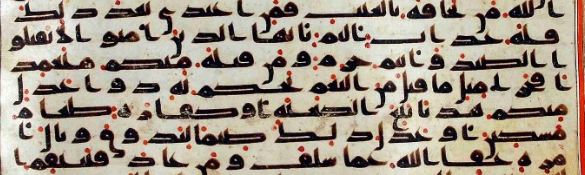 الله من يخافه بالغيب فمن اعتدى بعد ذلك
فله عذاب اليم يايها الذين امنوا لا تقتلو
ا الصيد وانتم حرم ومن قتله منكم متعمد
ا فجزا مثل ما قتل من النعم يحكم به ذوا عدل
منكم هديا بلغ الكعبه او كفاره طعام
مسكين او عدل ذلك صياما ليذوق وبال ا
مره عفا الله عما سلف ومن عاد فينتقم ا